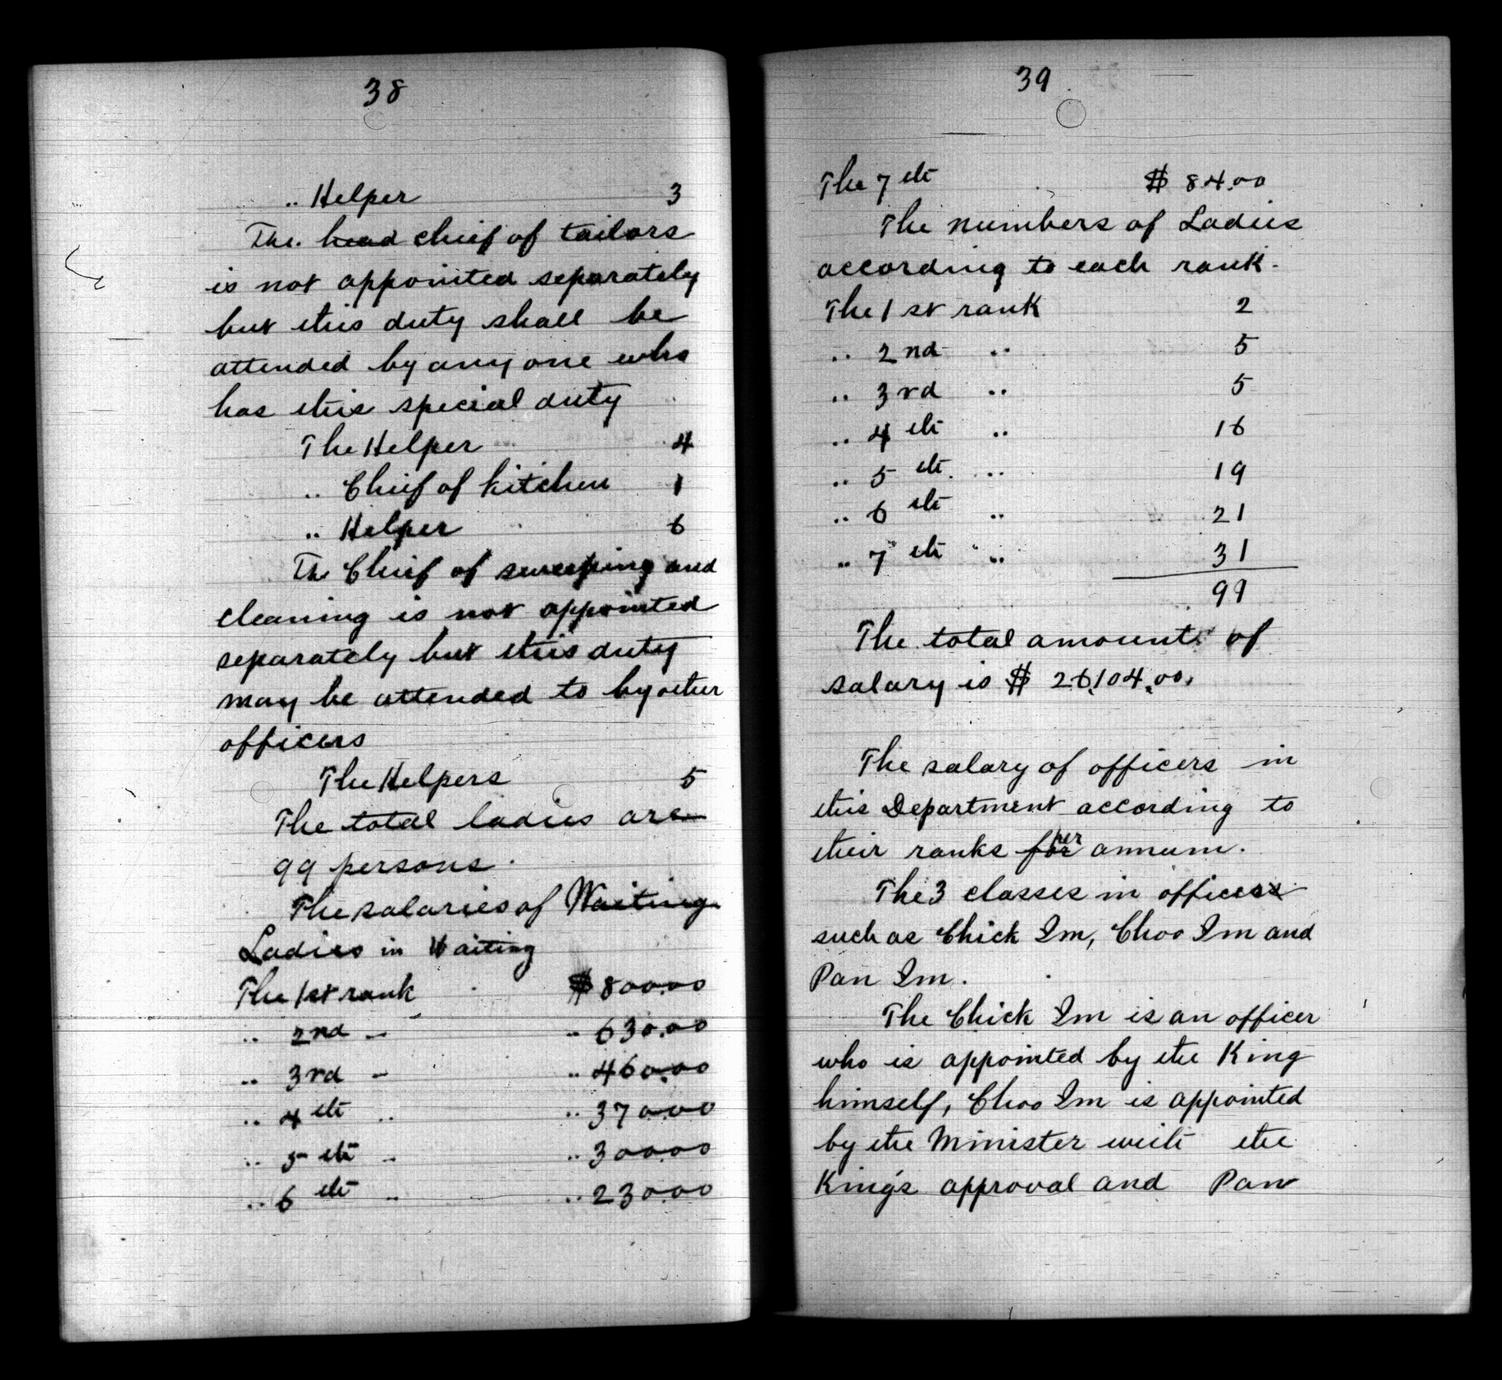 38
" Helper 3
The head chief of tailors
is not appointed separately
but this duty shall be
attended by any one who
has this special duty
The Helper 4
" Chief of kitchen 1
" Helper 6
The Chief of sweeping and
cleaning is not appointed
separately but this duty
may be attended to by other
officers
The Helpers 5
The total ladies are
99 persons.
The salaries of Waiting
Ladies in Waiting
The 1st rank $ 800.00
" 2nd " " 630.00
" 3rd " " 460.00
" 4th " " 370.00
" 5th " " 300.00
" 6th " " 230.00
39
The 7th $ 84.00
The numbers of Ladies
according to each rank.
The 1st rank 2
" 2nd " 5
" 3rd " 5
" 4th " 16
" 5th " 19
" 6th " 21
" 7th " 31
99
The total amount of
salary is $ 26,104.00.
The salary of officers in
this Department according to
their ranks for per annum.
The 3 classes in officess
such as Chick Im, Choo Im and
Pan Im.
The Chick Im is an officer
who is appointed by the King
himself, Choo Im is appointed
by the Minister with the
King's approval and Pan